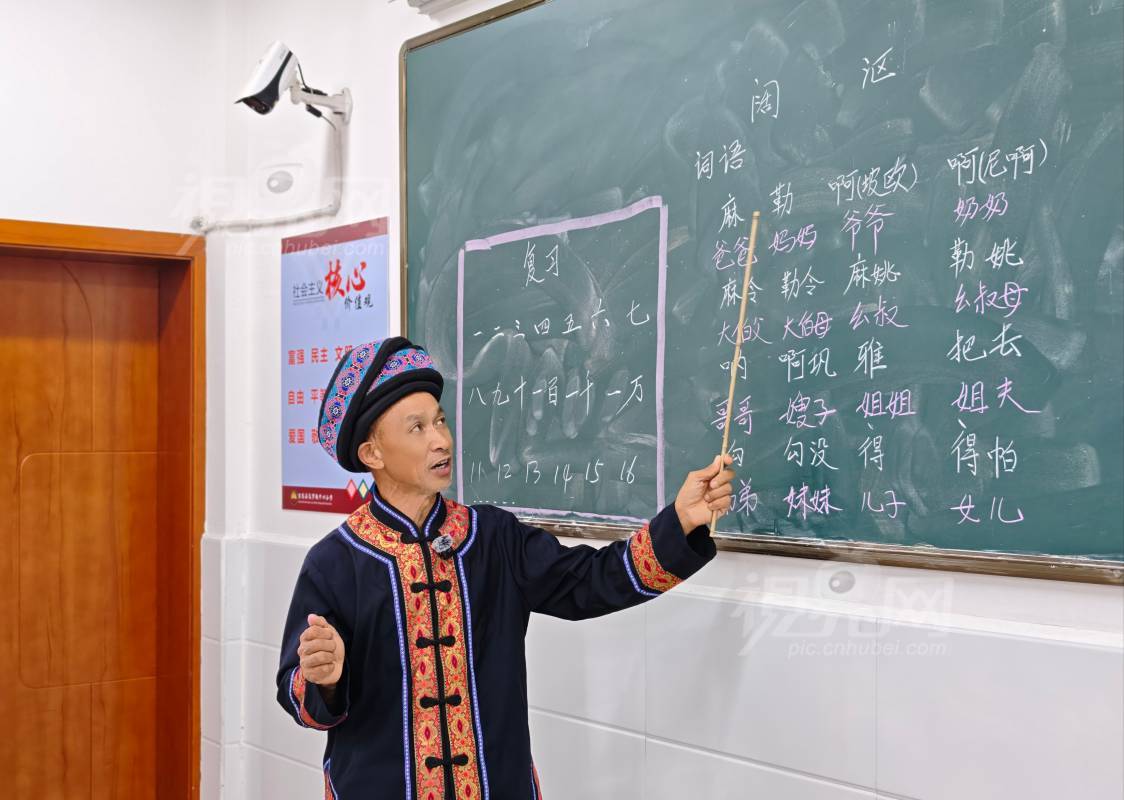 社会主义
核心
价值观
富强 民主 文明
自由 平
爱国
复习
一 二 三 四 五 六 七
八 九 十 一百 一千 一万
11 12 13 14 15 16
阔 沤
词语
麻 勒 啊(坡欧) 啊(尼啊)
爸爸 妈妈 爷爷 奶奶
麻令 勒令 麻姚 勒姚
大伯父 大伯母 幺叔 幺叔母
呐 啊巩 雅 把去
哥哥 嫂子 姐姐 姐夫
勾没 得 得帕
弟 妹妹 儿子 女儿
视界网
pic.cnhubei.com